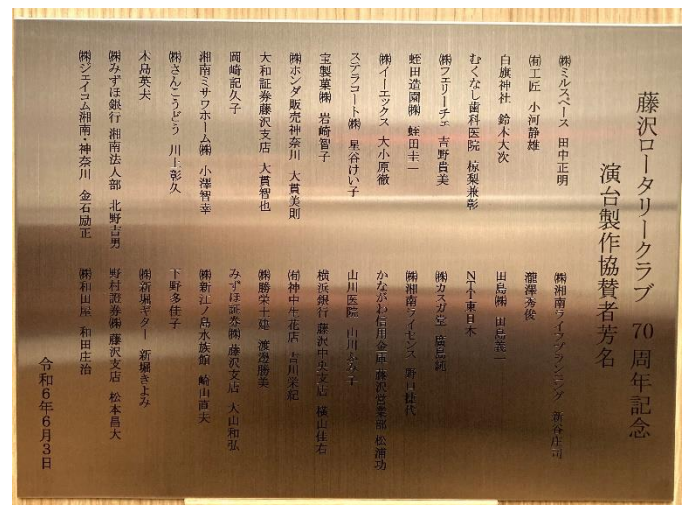 藤沢ロータリークラブ 70周年記念
演台製作協賛者芳名
㈱ミルスペース 田中正明
㈲工匠 小河静雄
白旗神社 鈴木大次
むくなし歯科医院 椋梨兼彰
㈱フェリーチェ 吉野貴美
蛭田造園㈱ 蛭田圭一
㈱イーエックス 大小原徹
ステラコート㈱ 星谷けい子
宝製菓㈱ 岩崎智子
㈱ホンダ販売神奈川 大貫美則
大和証券藤沢支店 大貫智也
岡崎記久子
湘南ミサワホーム㈱ 小澤智幸
㈱さんこうどう 川上彰久
木島英夫
㈱みずほ銀行 湘南法人部 北野吉男
㈱ジェイコム湘南・神奈川 金石励正
㈱湘南ライフプランニング 新谷庄司
瀧澤秀俊
田島㈱ 田島義一
NTT東日本
㈱カスガ堂 廣島純
㈱湘南ライセンス 野口桂代
かながわ信用金庫 藤沢営業部 松浦功
山川医院 山川ふみ子
横浜銀行 藤沢中央支店 横山佳右
㈲神中生花店 吉川栄紀
㈱勝栄土建 渡邉勝美
みずほ証券㈱ 藤沢支店 大山和弘
㈱新江ノ島水族館 崎山直夫
下野多佳子
㈱新堀ギター 新堀きよみ
野村證券㈱ 藤沢支店 松本昌大
㈱和田屋 和田庄治
令和6年6月3日